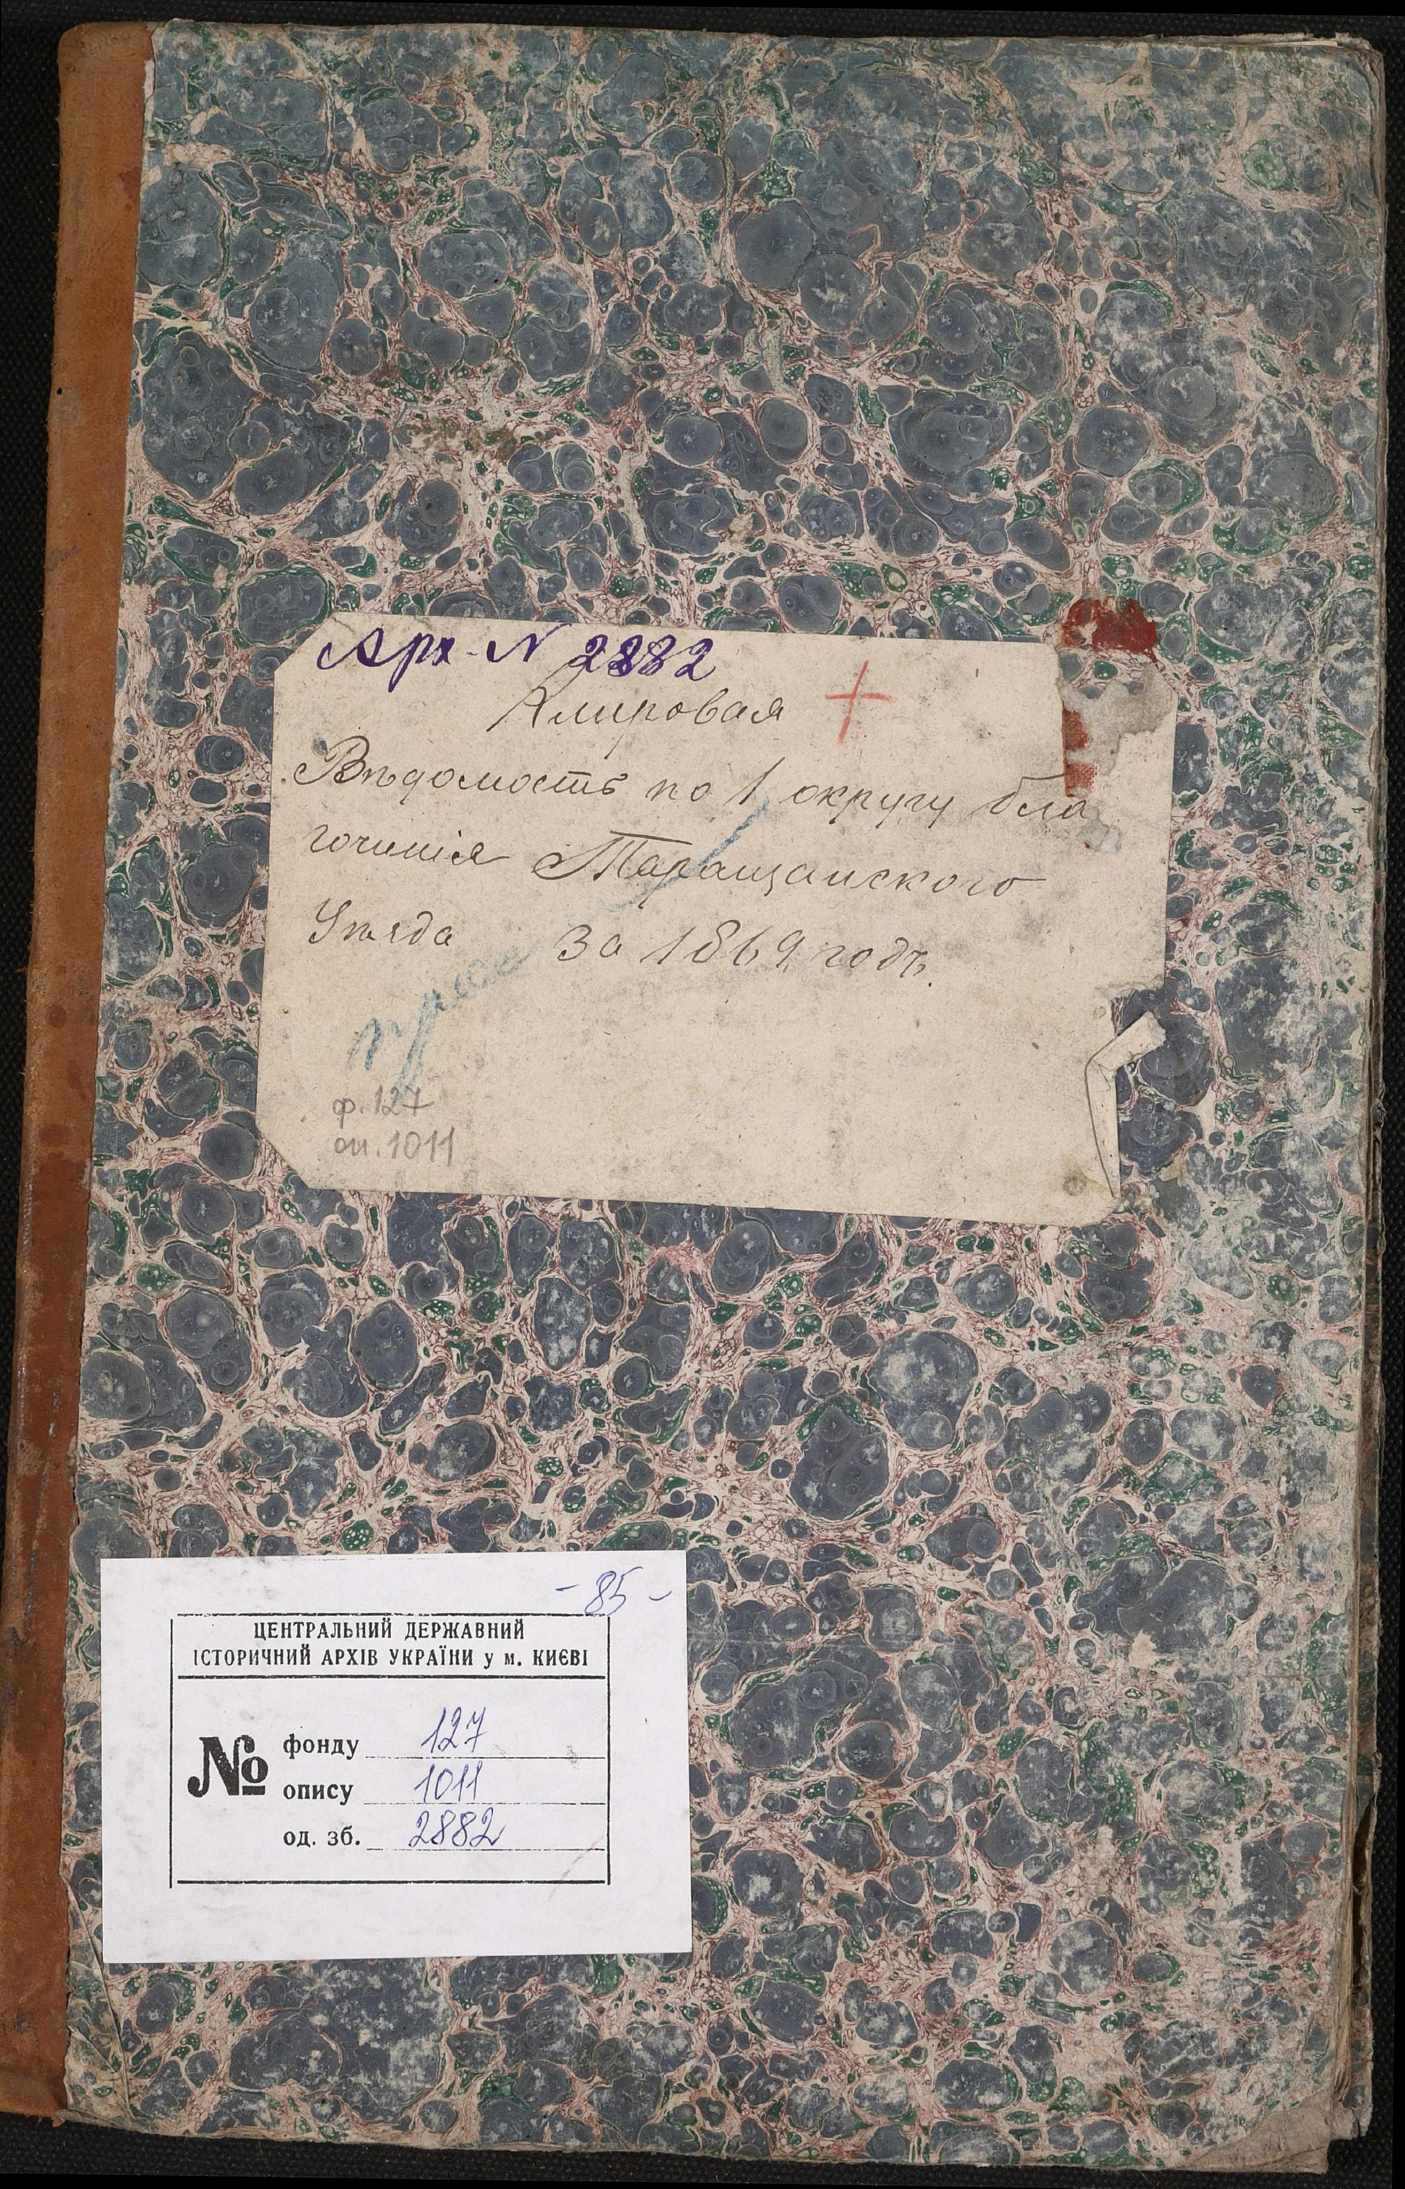 Арх. N 2882
Клировая
Вѣдомость по 1 округу бла
гочинія Таращанского
Уѣзда за 1869 годъ.
ф. 127
оп. 1011
- 85 -
ЦЕНТРАЛЬНИЙ ДЕРЖАВНИЙ
ІСТОРИЧНИЙ АРХІВ УКРАЇНИ у м. КИЄВІ
№ фонду 127
опису 1011
од. зб. 2882